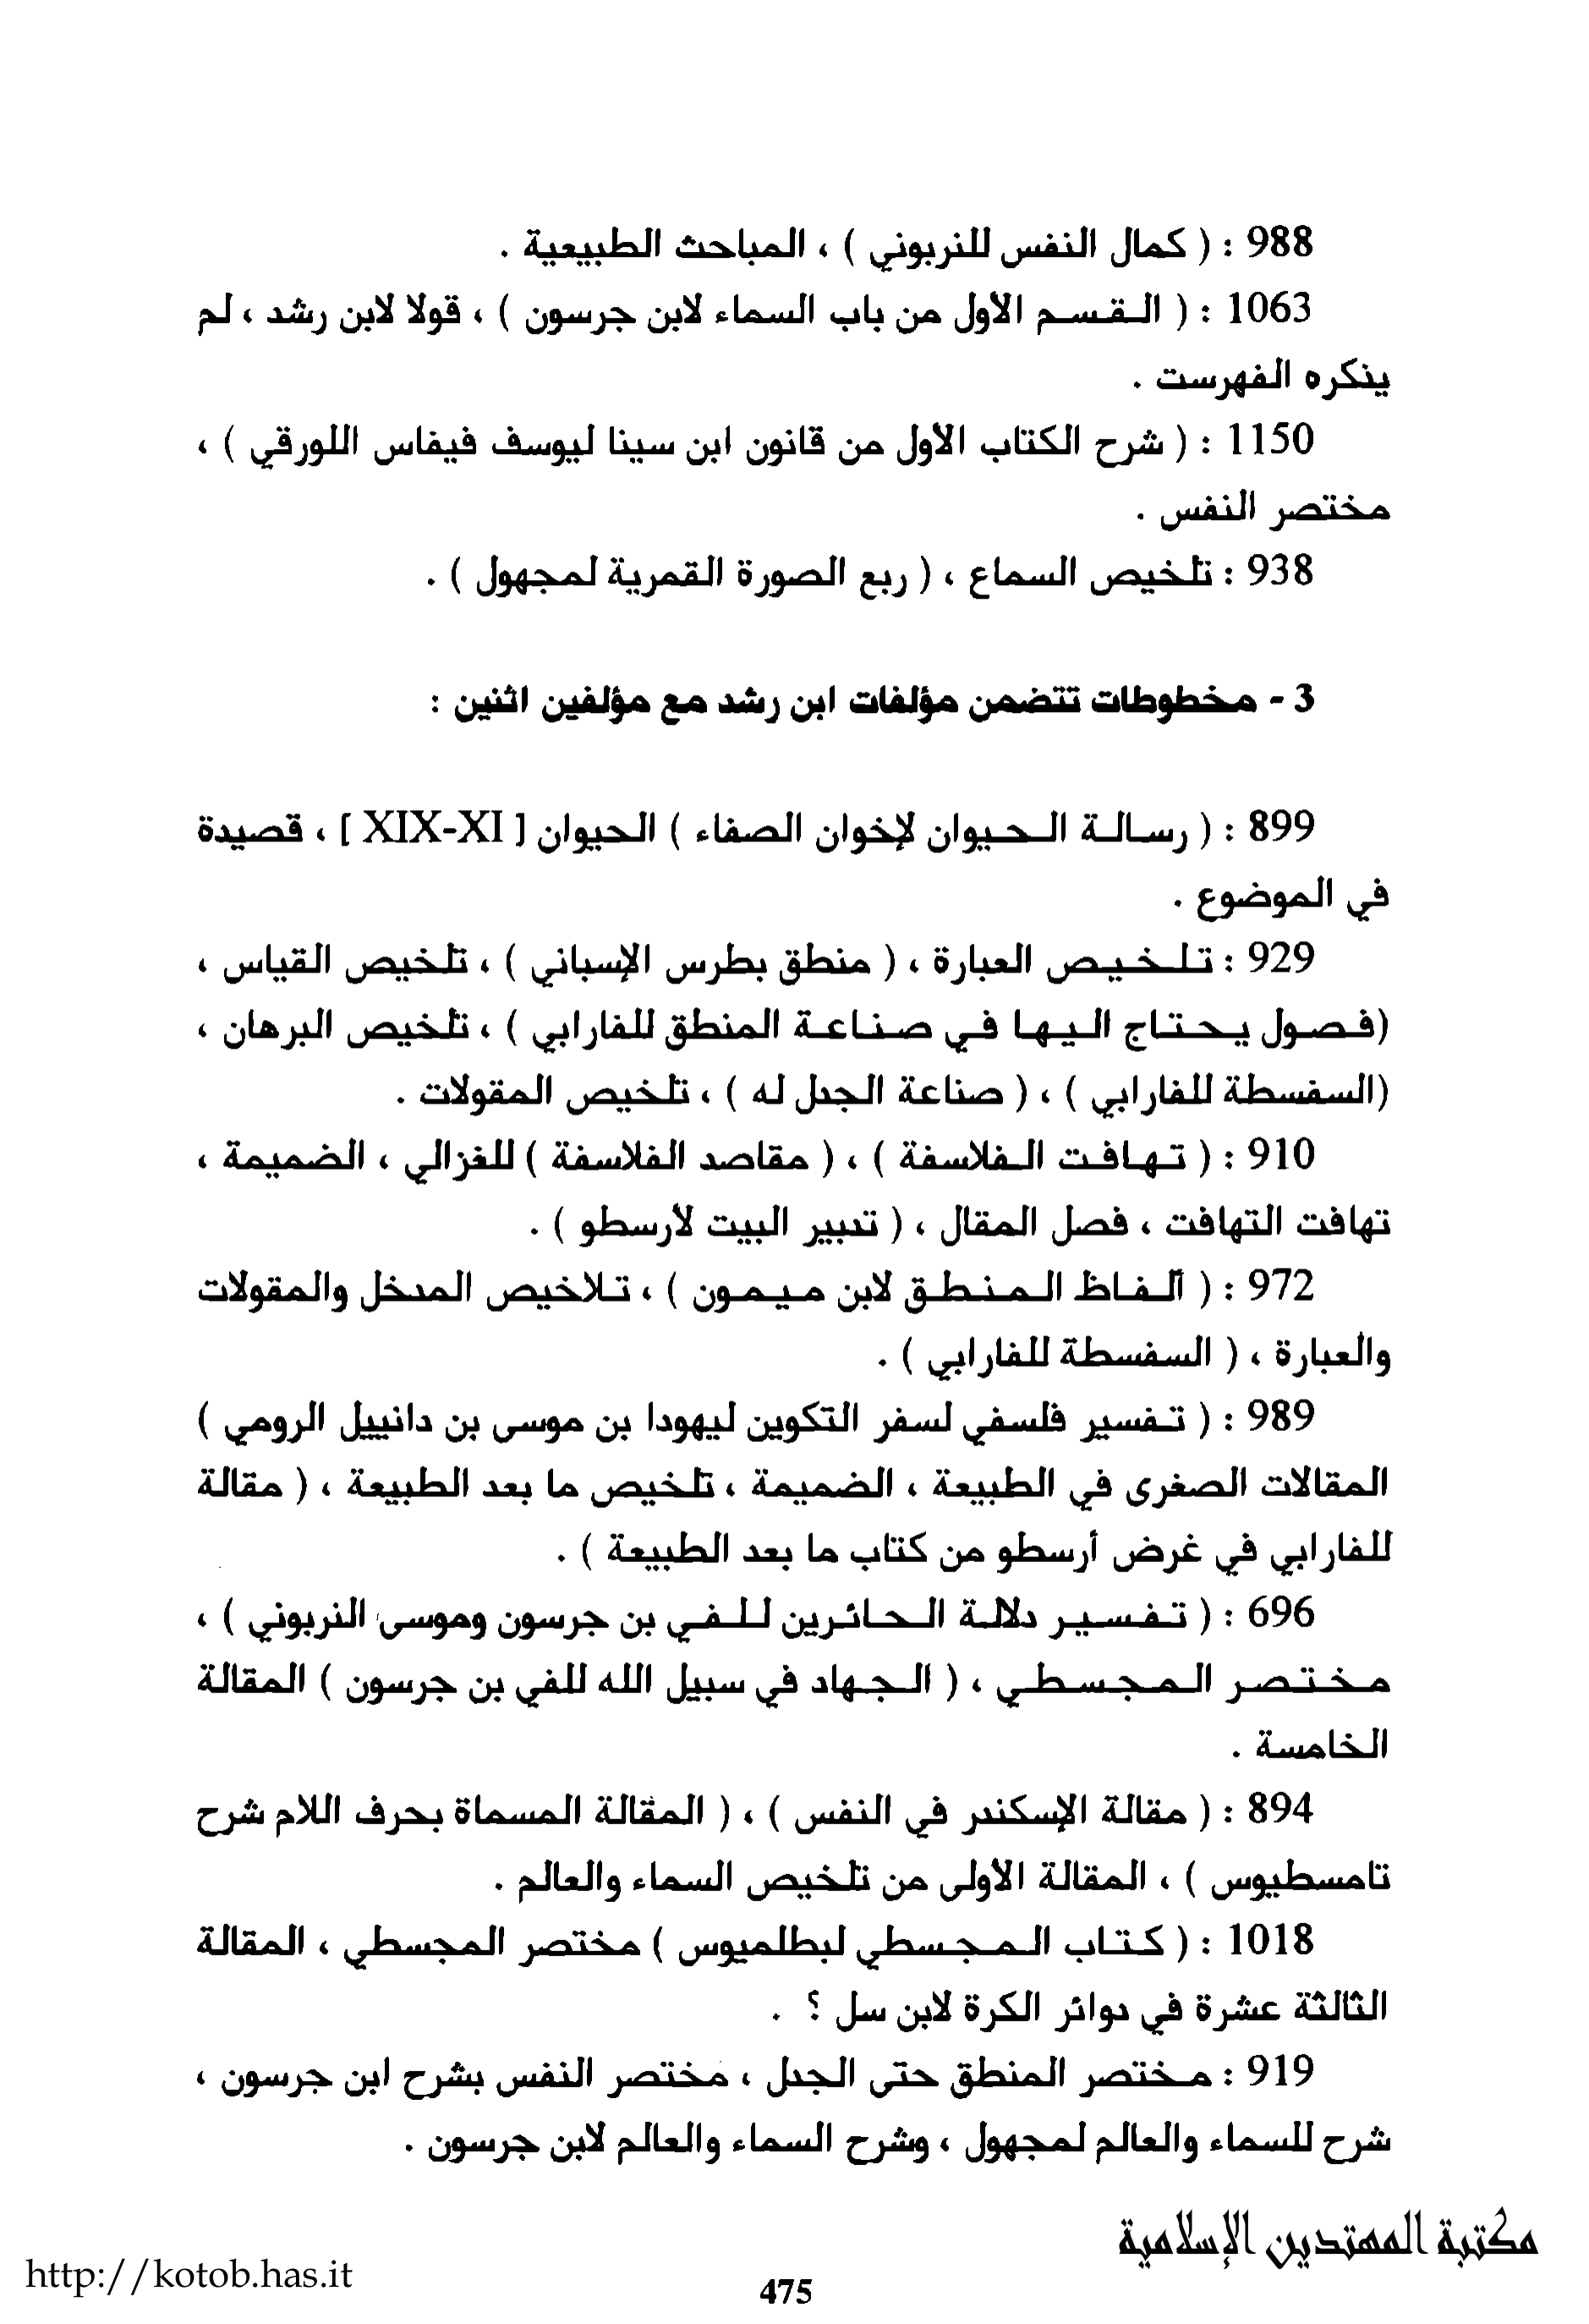 988 : ( كمال النفس للنربوني ) ، المباحث الطبيعية .
1063 : ( القسم الأول من باب السماء لابن جرسون ) ، قولا لابن رشد ، لم
يذكره الفهرست .
1150 : ( شرح الكتاب الأول من قانون ابن سينا ليوسف فيفاس اللورقي ) ،
مختصر النفس .
938 : تلخيص السماع ، ( ربع الصورة القمرية لمجهول ) .
3 - مخطوطات تتضمن مؤلفات ابن رشد مع مؤلفين اثنين :
899 : ( رسالة الحيوان لإخوان الصفاء ) الحيوان [ XIX-XI ] ، قصيدة
في الموضوع .
929 : تلخيص العبارة ، ( منطق بطرس الإسباني ) ، تلخيص القياس ،
(فصول يحتاج اليها في صناعة المنطق للفارابي ) ، تلخيص البرهان ،
(السفسطة للفارابي ) ، ( صناعة الجدل له ) ، تلخيص المقولات .
910 : ( تهافت الفلاسفة ) ، ( مقاصد الفلاسفة ) للغزالي ، الضميمة ،
تهافت التهافت ، فصل المقال ، ( تدبير البيت لأرسطو ) .
972 : ( ألفاظ المنطق لابن ميمون ) ، تلاخيص المدخل والمقولات
والعبارة ، ( السفسطة للفارابي ) .
989 : ( تفسير فلسفي لسفر التكوين ليهودا بن موسى بن دانييل الرومي )
المقالات الصغرى في الطبيعة ، الضميمة ، تلخيص ما بعد الطبيعة ، ( مقالة
للفارابي في غرض أرسطو من كتاب ما بعد الطبيعة ) .
696 : ( تفسير دلالة الحائرين للفي بن جرسون وموسى النربوني ) ،
مختصر المجسطي ، ( الجهاد في سبيل الله للفي بن جرسون ) المقالة
الخامسة .
894 : ( مقالة الإسكندر في النفس ) ، ( المقالة المسماة بحرف اللام شرح
تامسطيوس ) ، المقالة الأولى من تلخيص السماء والعالم .
1018 : ( كتاب المجسطي لبطلميوس ) مختصر المجسطي ، المقالة
الثالثة عشرة في دوائر الكرة لابن سل ؟ .
919 : مختصر المنطق حتى الجدل ، مختصر النفس بشرح ابن جرسون ،
شرح للسماء والعالم لمجهول ، وشرح السماء والعالم لابن جرسون .
مكتبة المهتدين الإسلامية
http://kotob.has.it
475